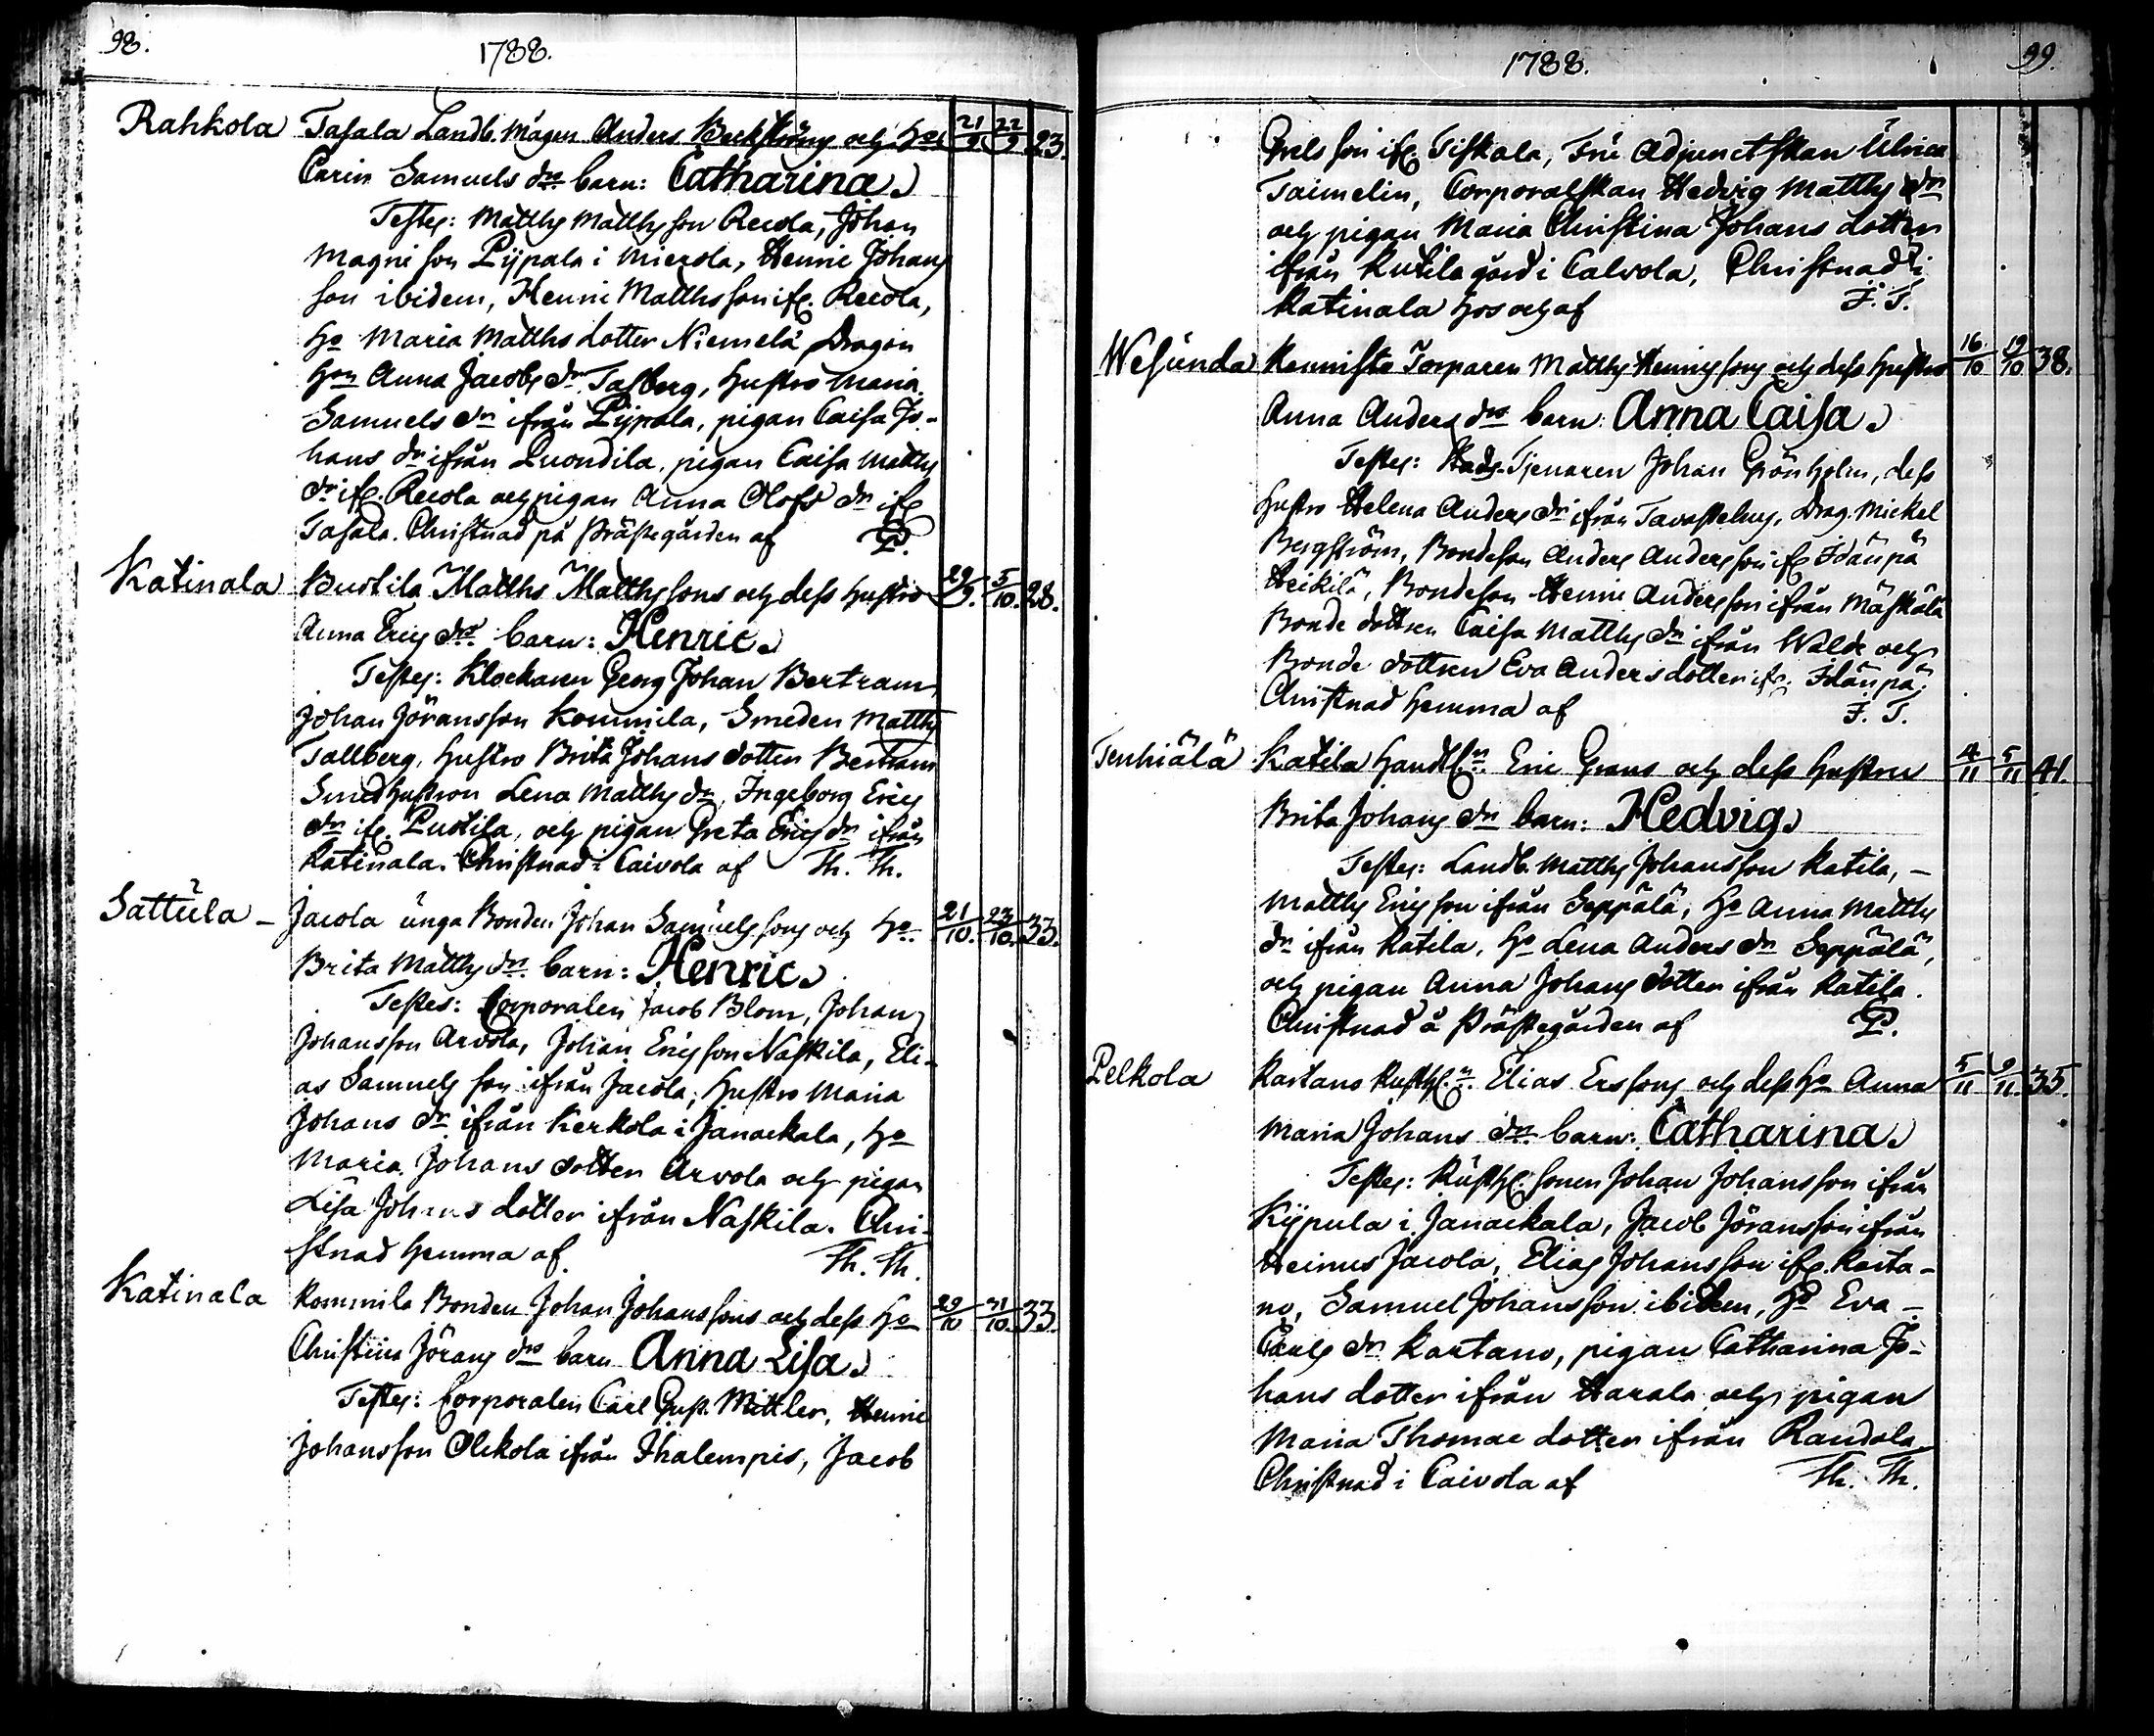 98.
1788.
Rahkola Tasala Landb. Mågen Anders Beckströms och Hos 21/9 22/9 23.
Carin Samuels drs barn: Catharina.
Testes: Matths Matthsson Recola, Johan
Magni son Pijpala i Mierola, Henric Johans
son ibidem, Henric Matthsson ifr. Recola,
Ho Maria Matths dotter Niemelä, Dragon
Hon Anna Jacobs dr Tasberg, hustro Maria
Samuels dr ifrån Pijpala, pigan Caisa Jo-
hans dr ifrån Quondila, pigan Caisa Matths
dr ifr. Recola och pigan Anna Olofs dr ifr
Tasala. Christnad på Prästegården af P.
Katinala Bustila Matths Matthssons och dess hustro 29/9. 5/10. 28.
Anna Erics drs barn: Henric.
Testes: Klockaren Georg Johan Bertram,
Johan Jöransson Kommila, Smeden Matths
Tallberg, hustro Brita Johans dotter Bertram
Smedhustron Lena Matths dr, Ingeborg Erics
dr ifr. Pustila, och pigan Greta Erics dr ifrån
Katinala. Christnad i Caivola af Th. Th.
Sattula - Jacola unga Bonden Johan Samuelssons och Ho 21/10. 23/10. 33.
Brita Matths drs barn: Henric.
Testes: Corporalen Jacob Blom, Johan
Johansson Arvola, Johan Ericsson Naskila, Eli-
as Samuels son ifrån Jacola, hustro Maria
Johans dr ifrån Kerkola i Janackala, Ho
Maria Johans dotter Arvola och pigan
Lisa Johans dotter ifrån Naskila. Chri-
stnad hemma af. Th. Th.
Katinala Kommila Bonden Johan Johanssons och dess Ho 29/10 31/10. 33.
Christina Jörans drs barn Anna Lisa.
Testes: Corporalen Carl Gust. Mittler, Henric
Johansson Olckola ifrån Ihalempis, Jacob
1788.
99.
Grels son ifr Tiskola, Fru Adjunctskan Ulrica
Taimelin, Corporalskan Hedvig Matths dr
och pigan Maria Christina Johans dotter
ifrån Kutila gård i Calvola, Christnad i
Katinala hos och af F. T.
Wesunda Kennista Torparen Matths Henricssons och dess hustro 16/10 19/10 38.
Anna Anders drs barn: Anna Caisa.
Testes: Stads-Tjenaren Johan Grönholm, dess
hustro Helena Anders dr ifrån Tavastehus, Drag. Mickel
Bergström, Bondeson Anders Andersson ifr Idänpä
Heikilä, Bondeson Henric Andersson ifrån Mäskälä
Bonde dottren Caisa Matths dr ifrån Walde och
Bonde dottren Eva Anders dotter ifr. Idänpä;
Christnad hemma af F. T.
Tenhiälä Katila handtl.n Eric Grans och dess hustru 4/11 5/11 41.
Brita Johans drs barn: Hedvig.
Testes: Landb. Matths Johansson Katila, -
Matths Ericsson ifrån Seppälä, Ho Anna Matths
dr ifrån Katila, Ho Lena Anders dr Seppälä,
och pigan Anna Johans dotter ifrån Katila.
Christnad å Prästegården af P.
Pelkola Kartano Rusth.n. Elias Erssons och dess Ho Anna 5/11 9/11. 35.
Maria Johans drs barn: Catharina.
Testes: Rusth. sonen Johan Johansson ifrån
Kijpula i Janackala, Jacob Jöransson ifrån
Heinus Jacola, Elias Johansson ifr. Karta-
no, Samuel Johansson ibidem, Ho Eva -
Carls dr Kartano, pigan Catharina Jo-
hans dotter ifrån Harala och pigan
Maria Thomae dotter ifrån Randala
Christnad i Caivola af Th. Th.